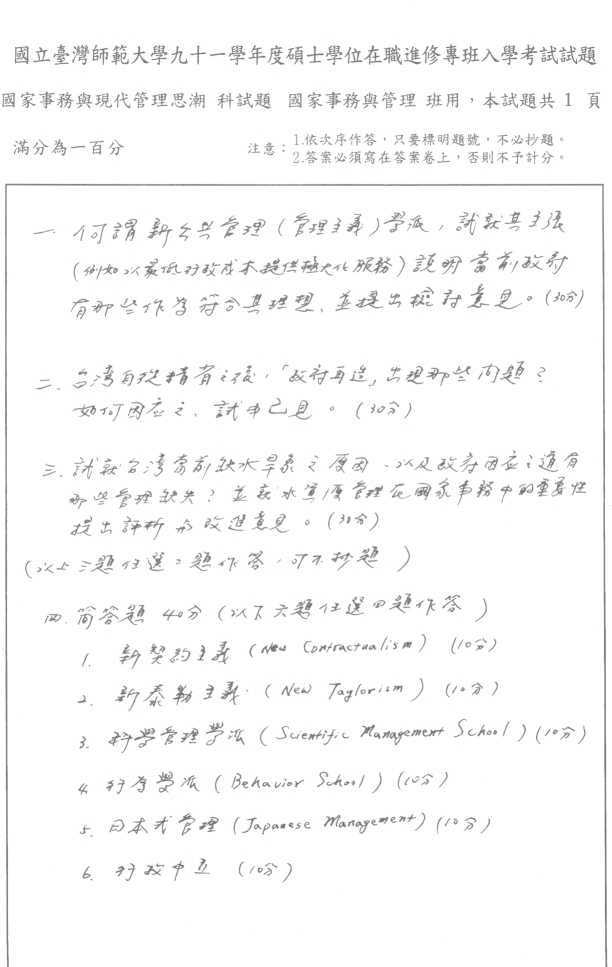 國立臺灣師範大學九十一學年度碩士學位在職進修專班入學考試試題
國家事務與現代管理思潮 科試題 國家事務與管理 班用，本試題共 1 頁
滿分為一百分
注意：1.依次序作答，只要標明題號，不必抄題。
2.答案必須寫在答案卷上，否則不予計分。
一. 何謂新公共管理(管理主義)學派，試就其主張
(例如以最低行政成本提供極大化服務)說明當前政府
有那些作為符合其理想、並提出檢討意見。(30分)
二. 台湾自從精省之後，「政府再造」出現那些問題？
如何因应之、試申己見。(30分)
三. 試就台湾當前缺水旱象之原因、以及政府因应之道有
那些管理缺失？並就水資源管理在國家事務中的重要性
提出評析與改進意見。(30分)
(以上三題任選二題作答，可不抄題)
四. 簡答題 40分 (以下六題任選四題作答)
1. 新契約主義 (New Contractualism) (10分)
2. 新泰勒主義 (New Taylorism) (10分)
3. 科學管理學派 (Scientific Management School) (10分)
4. 行為學派 (Behavior School) (10分)
5. 日本式管理 (Japanese Management) (10分)
6. 行政中立 (10分)